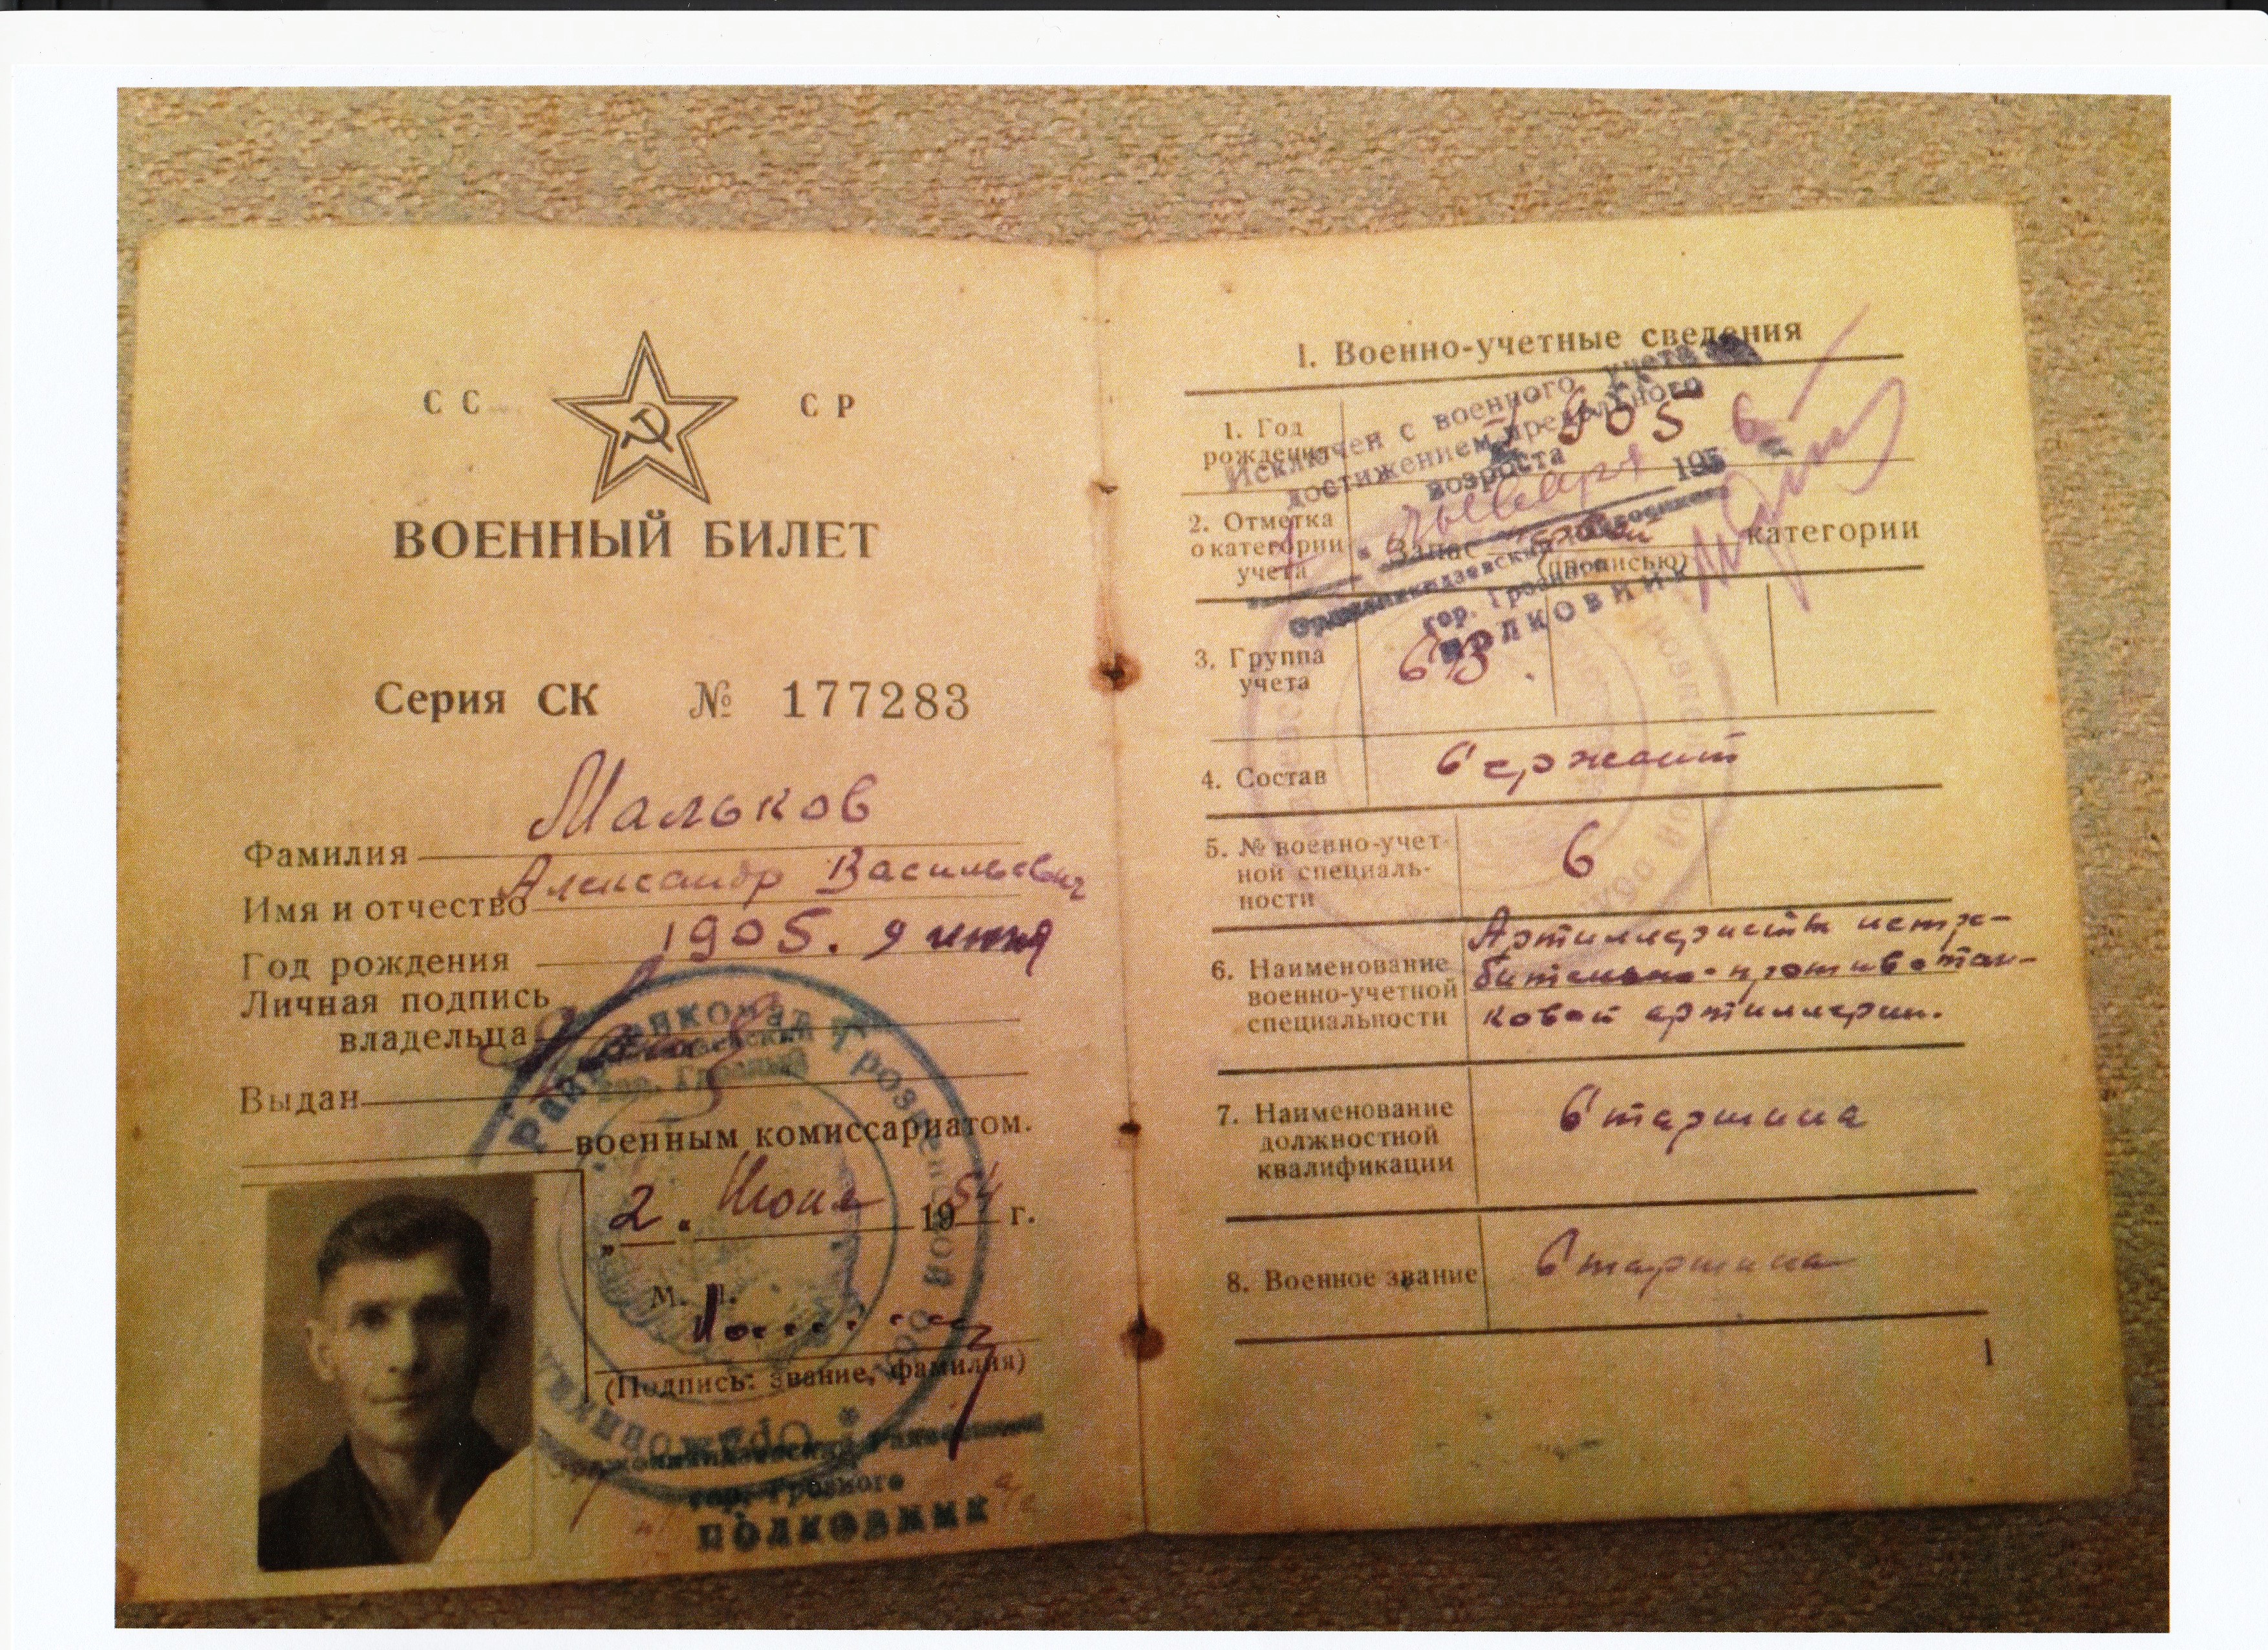 СС СР
ВОЕННЫЙ БИЛЕТ
Серия СК № 177283
Фамилия Мальков
Имя и отчество Александр Васильевич
Год рождения 1905. 9 июня
Личная подпись
владельца
Выдан
военным комиссариатом.
„2" Июня 1954 г.
М. П.
(Подпись: звание, фамилия)
Райвоенкомат Грозненской обл.
гор. Грозного
полковник
I. Военно-учетные сведения
1. Год
рождения
1905
Исключен с военного учета
достижением предельного
возраста
января 195
2. Отметка
о категории
учета
Запас категории
(прописью)
гор. Грозного
полковник
3. Группа
учета
4. Состав
Сержант
5. № военно-учет-
ной специаль-
ности
6
6. Наименование
военно-учетной
специальности
Артиллеристы истре-
бительно-противотан-
ковой артиллерии.
7. Наименование
должностной
квалификации
Старшина
8. Военное звание
Старшина
1